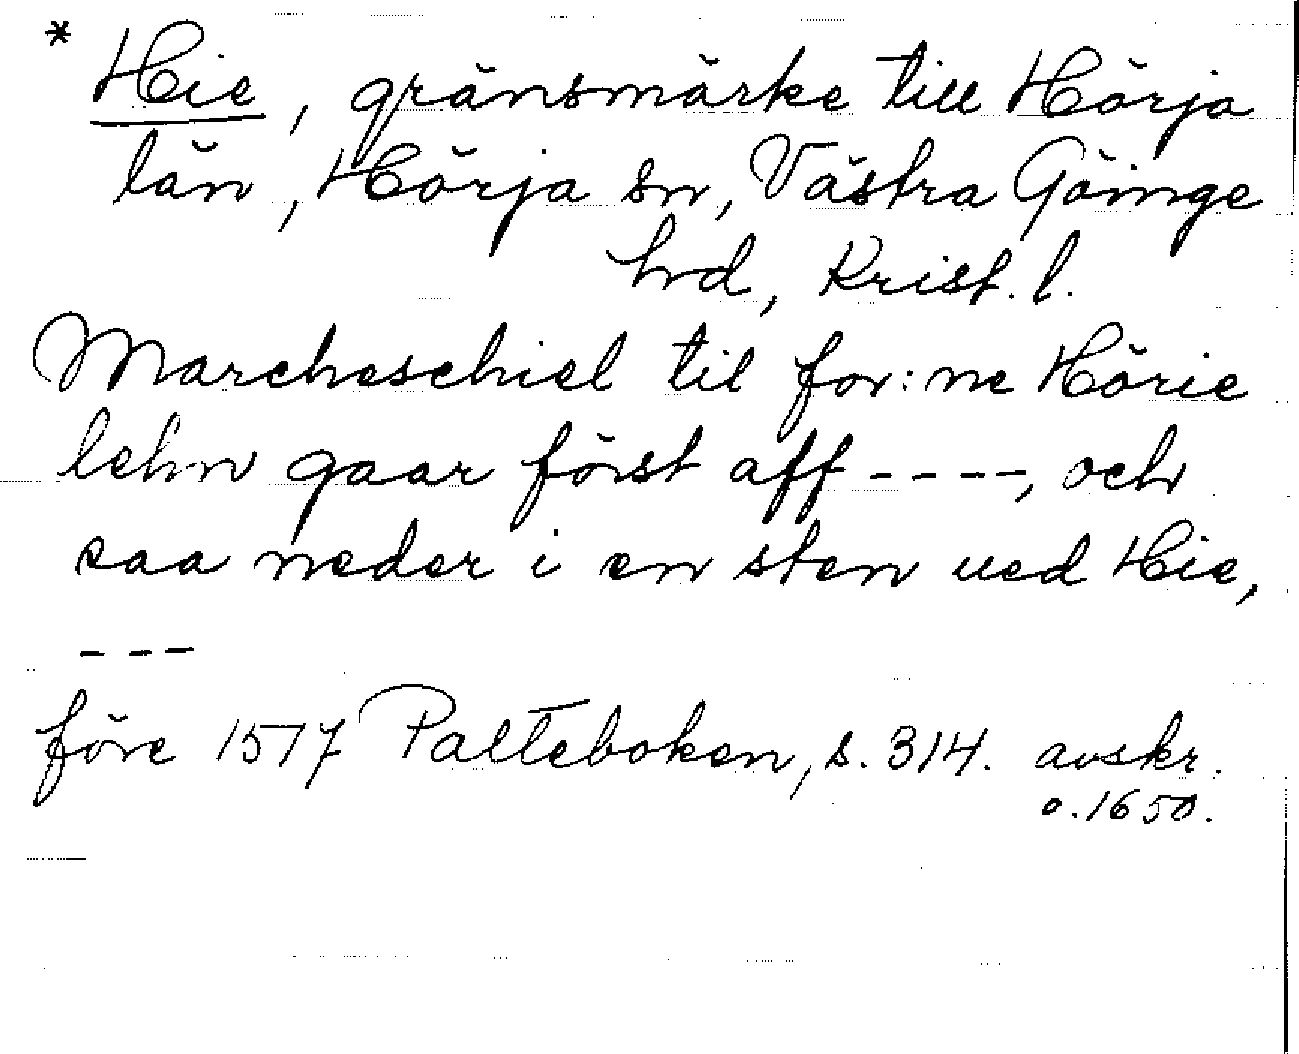 * Hie, gränsmärke till Hörja
län, Hörja sn, Västra Göinge
hrd, Krist. l.
Marcheschiel til for:ne Hörie
lehn gaar först aff ----, och
saa neder i en sten ued Hie,
---
före 1517 Palteboken, s. 314. avskr.
o. 1650.